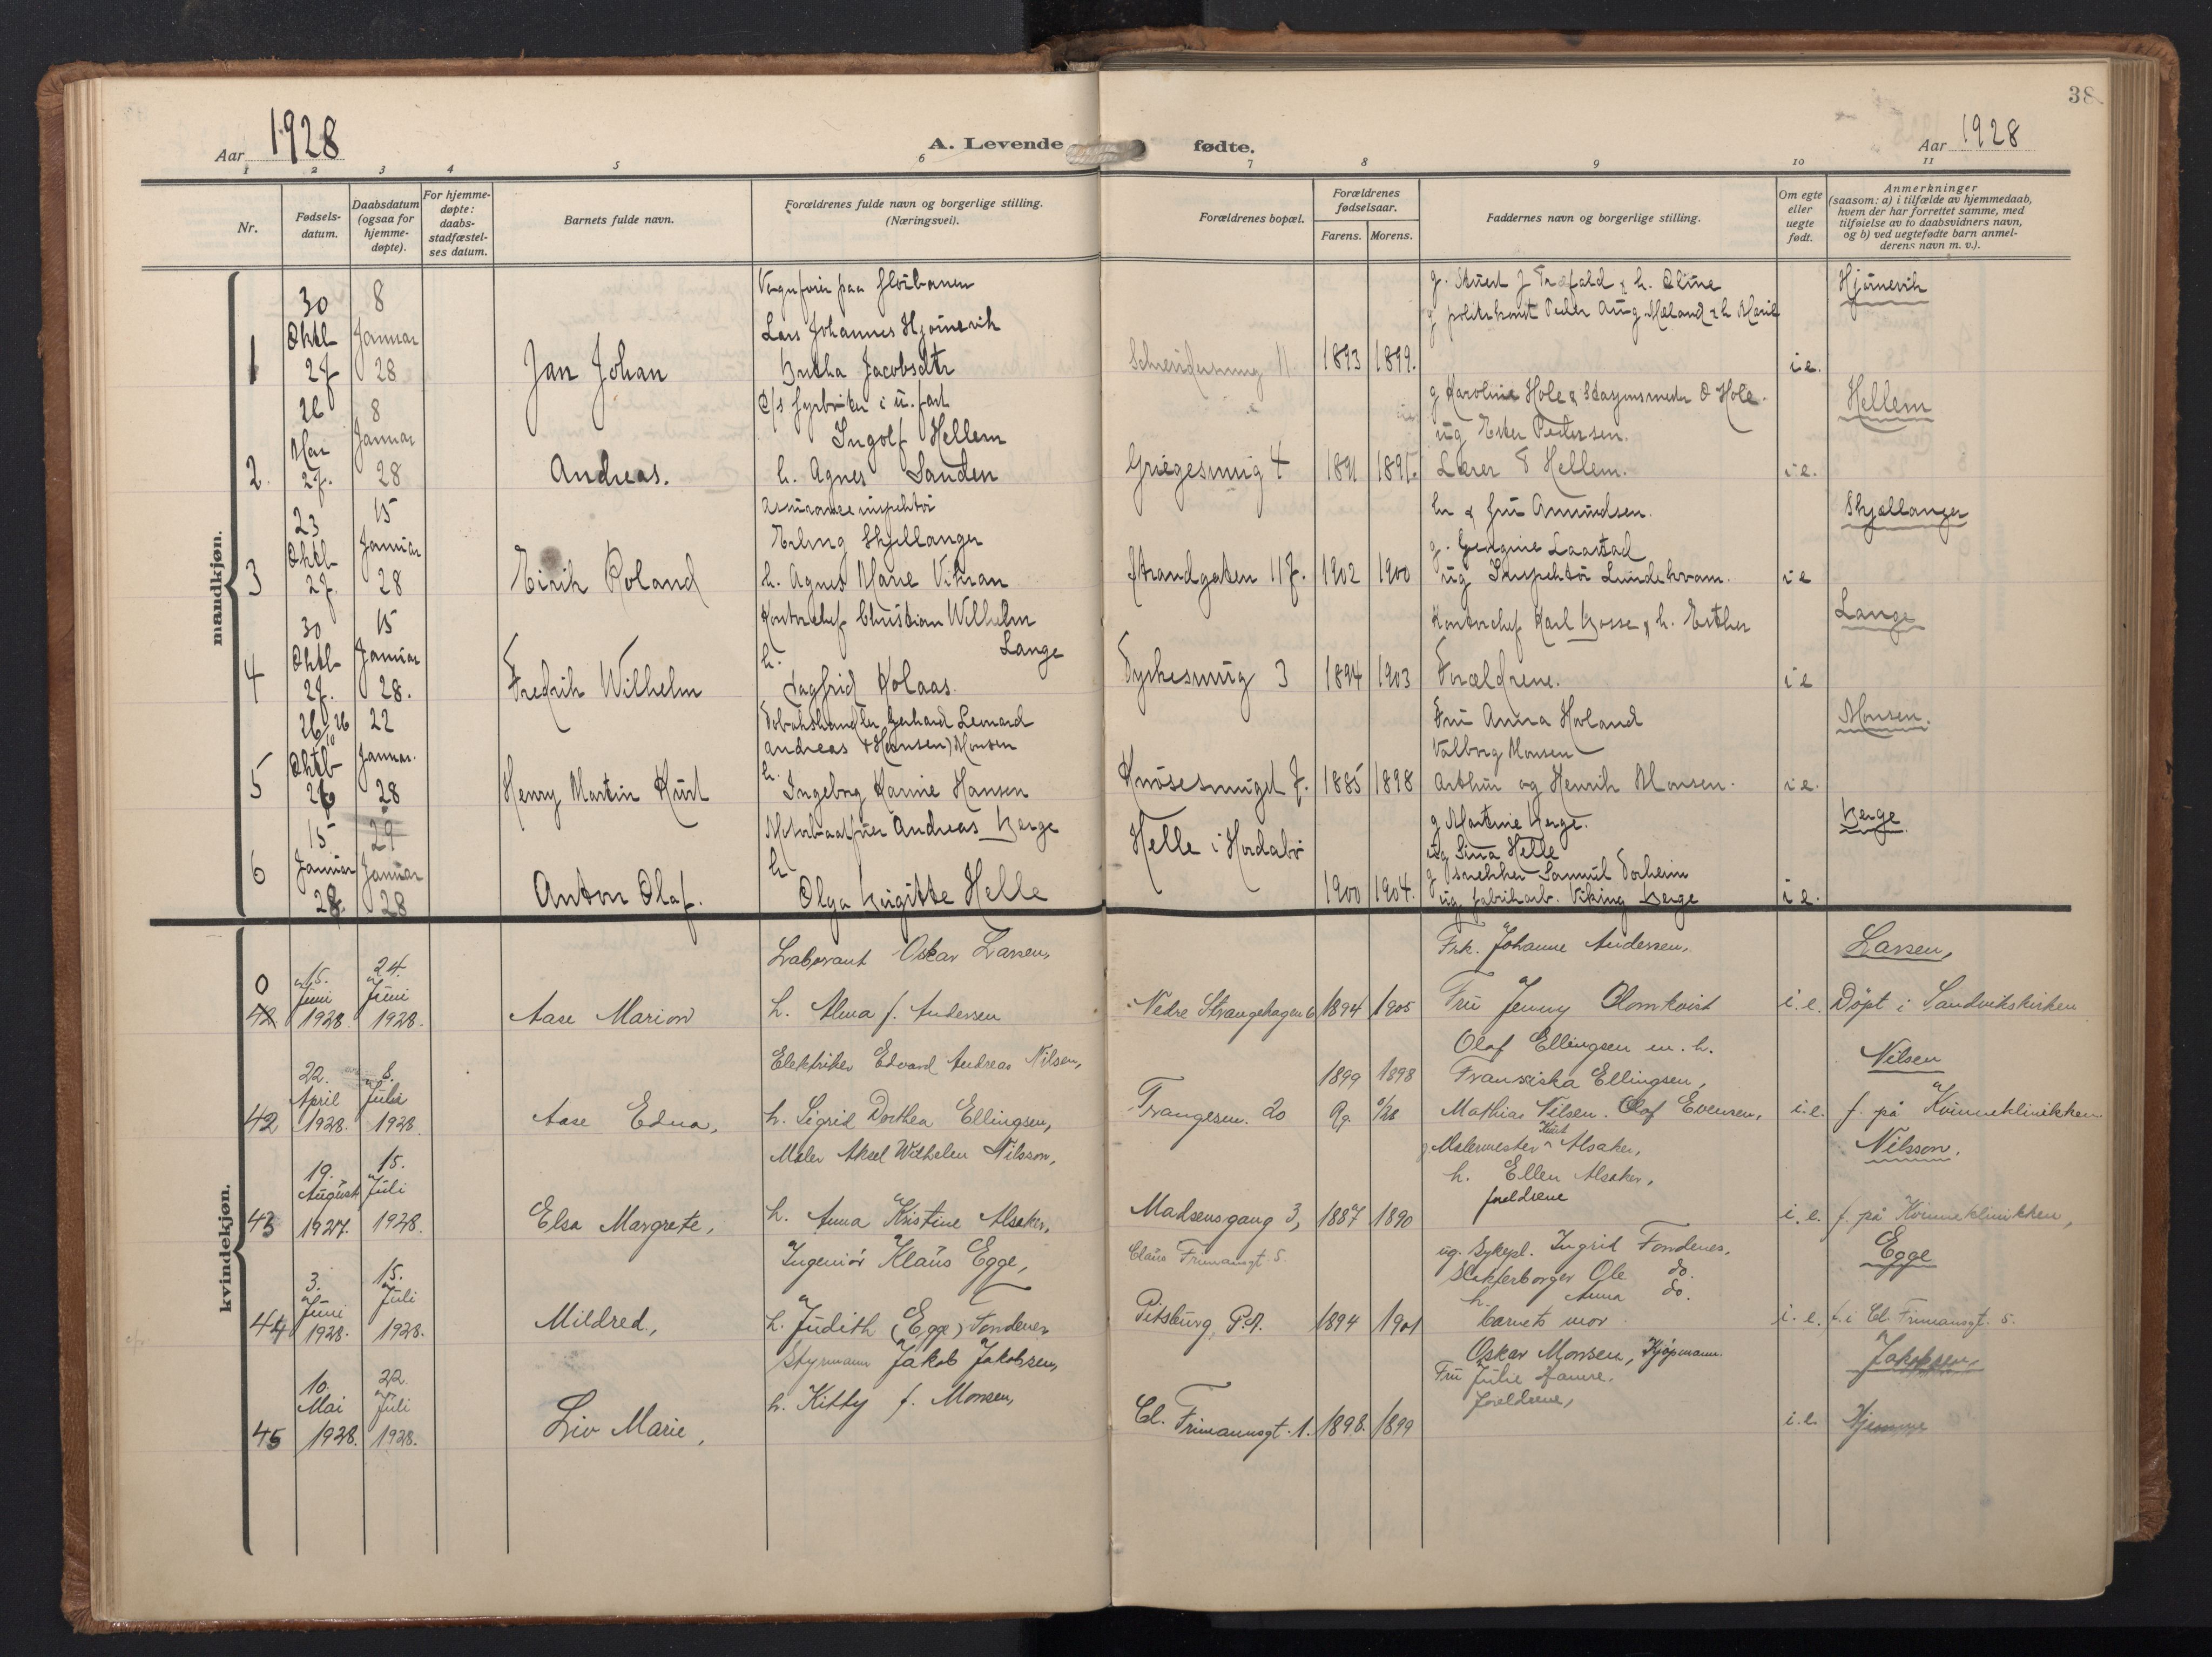 38
Aar 1928
A. Levende fødte.
Aar 1928
1 2 3 4 5 6 7 8 9 10 11
Nr.
Fødsels-
datum.
Daabsdatum
(ogsaa for
hjemme-
døpte).
For hjemme-
døpte:
daabs-
stadfæstel-
ses datum.
Barnets fulde navn.
Forældrenes fulde navn og borgerlige stilling.
(Næringsvei).
Forældrenes bopæl.
Forældrenes
fødselsaar.
Farens. Morens.
Faddernes navn og borgerlige stilling.
Om egte
eller
uegte
født.
Anmerkninger
(saasom: a) i tilfælde av hjemmedaab,
hvem der har forrettet samme, med
tilføielse av to daabsvidners navn,
og b) ved uegtefødte barn anmel-
derens navn m. v.).
mandkjøn.
1
30
Oktb
27
8
Januar
28
Jan Johan
Lars Johannes Hjørnevik
Jacobsdtr
11
1893 1899.
i.e.
Hjørnevik
2.
26
Mai
27.
8
Januar
28
Andreas.
Ingolf Hellem
h. Agnes Sanden
Griegesmug 4
1891 1895.
g Karoline Hole & O Hole.
ug Ester Petersen.
Lærer Hellem.
i.e.
Hellem
3
23
Oktb
27.
15
Januar
28
Eirik Roland
Erling Skjellanger
h. Agnes Marie Vikran
Strandgaten 117.
1902 1900
hr & fru Amundsen.
g. Georgine Laastad
ug Inspektør Lundekvam.
i e
Skjællanger
4
30
Oktb
27.
15
Januar
28.
Fredrik Wilhelm
Kontorchef Christian Wilhelm
Lange
h.
Dagfrid Kolaas.
Dyrkesmug 3
1894 1903
Kontorchef Karl Bosse & h. Esther
Forældrene.
i e
Lange
5
26
Oktb
26
22
Januar.
28
Henry Martin Kurt
Tobakshandler Gerhard Leonard
Andreas (Hansen) Monsen
h. Ingeborg Karine Hansen
Knøsesmuget 7.
1885 1898
Fru Anna Hovland
Valborg Monsen
Arthur og Henrik Monsen.
i e.
Monsen.
6
15
Januar
28
29
Januar
28
Anton Olaf.
Motorbaatfører Andreas Berge
h
Olga Birgitte Helle
Helle i Hordabø
1900 1904.
g Martine Berge.
ug Lina Helle
g snekker Samuel Torheim
ug fabrikarb. Viking Berge
i e.
Berge
kvindekjøn.
0
42
15.
Juni
1928.
24.
Juni
1928.
Aase Marion
Laborant Oskar Larsen,
h. Alma f. Andersen
Nedre Strangehagen 6
1894 1905
Frk. Johanne Andersen,
Fru Jenny Blomkvist
i.e.
Larsen,
Døpt i Sandvikskirken
42
22.
April
1928.
8.
Juli
1928
Aase Edna,
Elektriker Edvard Andreas Nilsen,
h. Sigrid Dorthea Ellingsen,
Trangesm. 20
1899 1898
Olaf Ellingsen m. h.
Franziska Ellingsen,
Mathias Nilsen. Olaf Evensen,
i.e.
Nilsen
f. på Kvinneklinikken
43
19.
August
1927.
15.
Juli
1928.
Elsa Margrete,
Maler Aksel Wilhelm Nilsson,
h. Anna Kristine Alsaker,
Madsensgang 3,
1887 1890
g Malermester Kurt Alsaker,
h. Ellen Alsaker,
foreldrene
i.e.
Nilsson.
f. på Kvinneklinikken,
44
3.
Juni
1928.
15.
Juli
1928.
Mildred,
Ingeniør Klaus Egge,
h. Judith (Egge) Fondenes
Claus Frimannsgt 5.
Pitsburg, P.A.
1894 1901
ug. Sykepl. Ingrid Fondenes,
Ole do.
h. Anna do.
barnets mor
i. e.
Egge
f. i Cl. Frimansgt. 5.
45
10.
Mai
1928.
22.
Juli
1928.
Liv Marie,
Styrmann Jakob Jakobsen,
h. Kitty f. Monsen,
Cl. Frimannsgt. 1.
1898. 1899
Oskar Monsen, Kjøpmann.
Fru Julie
foreldrene,
i.e.
Jakobsen,
Hjemme